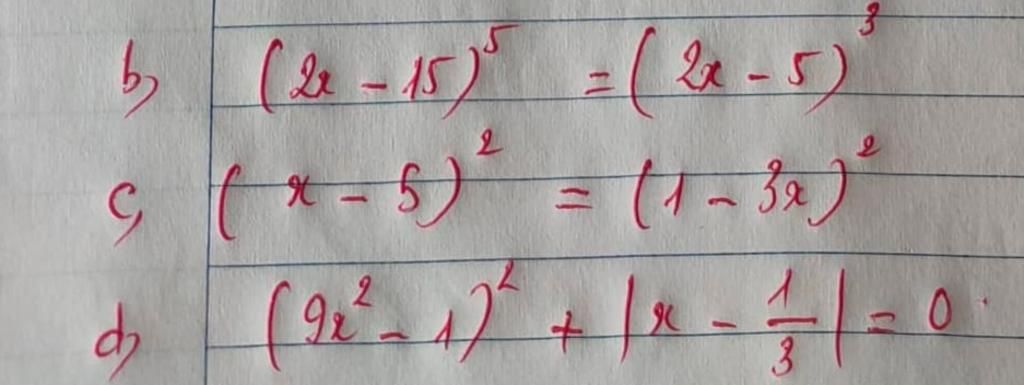 b, (2x - 15)⁵ = (2x - 5)³
c, (x - 5)² = (1 - 3x)²
d, (9x² - 1)² + |x - 1/3| = 0